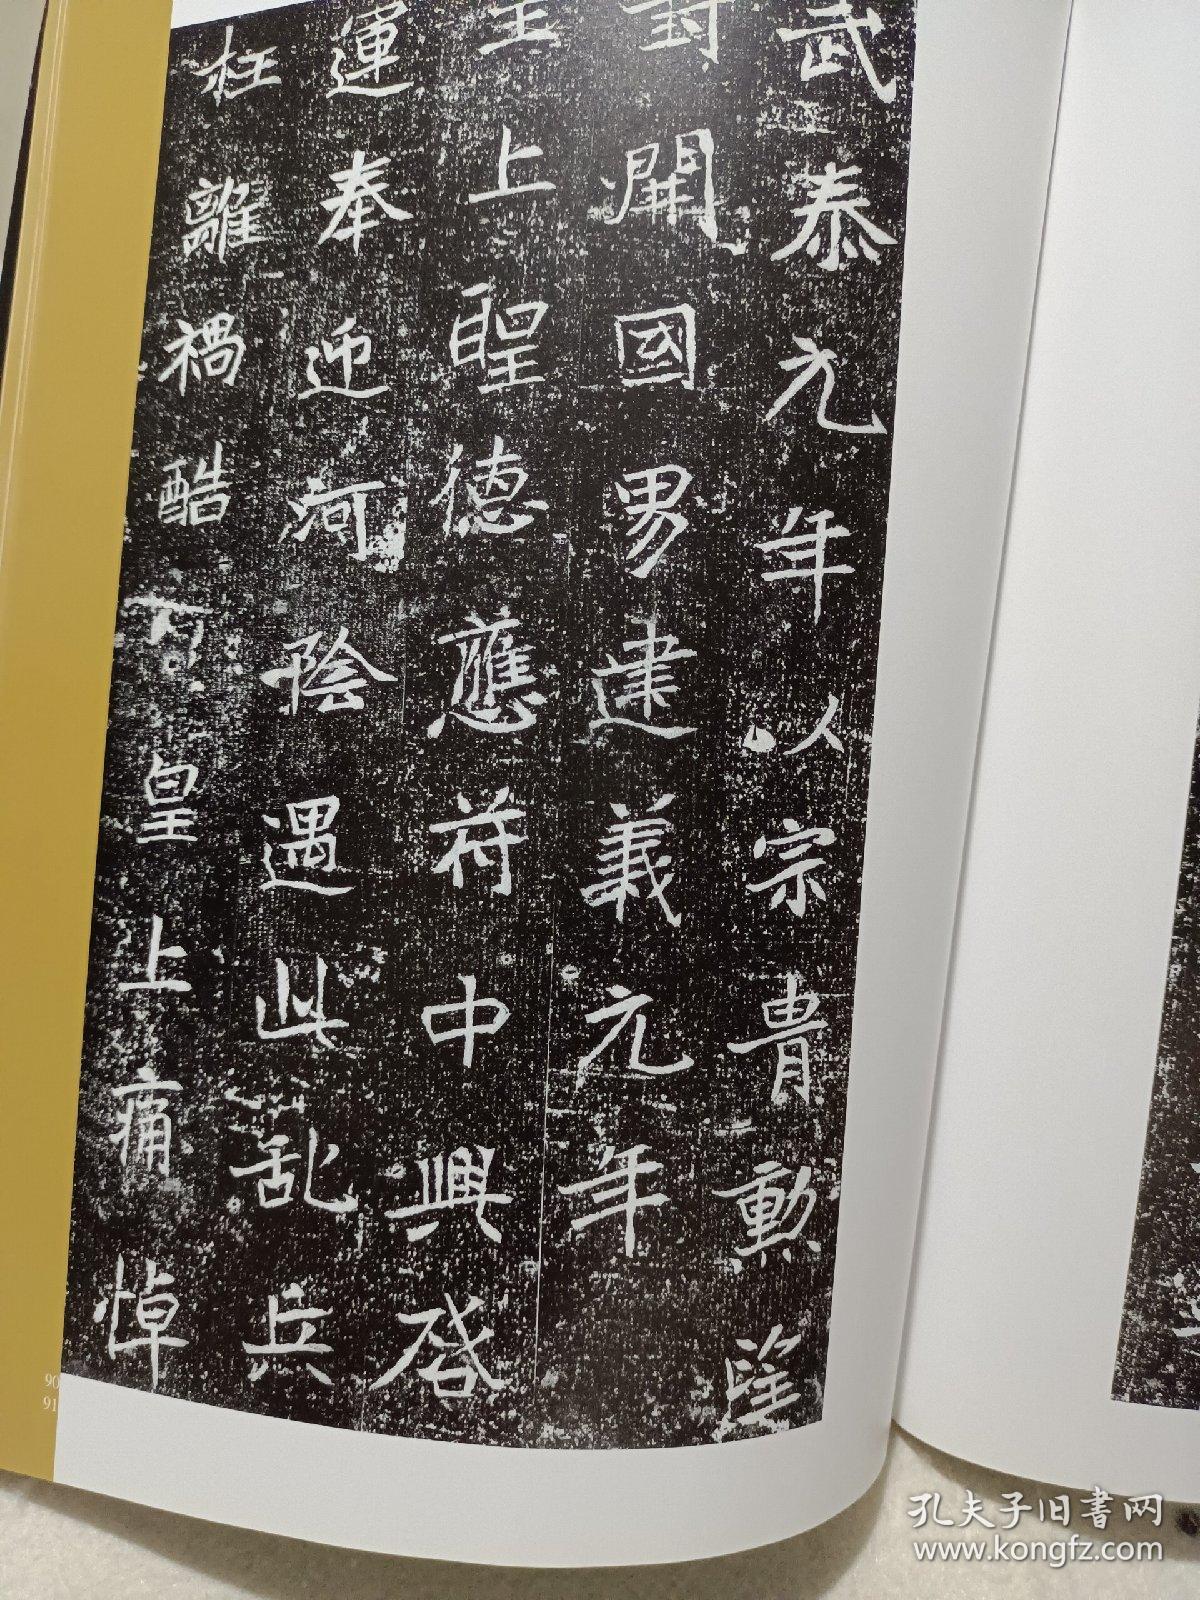 武泰元年以宗胄勳望
封開國男建義元年
主上聖德應符中興啓
運奉迎河陰遇此亂兵
枉離禍酷
皇上痛悼
90
91
孔夫子旧书网
www.kongfz.com